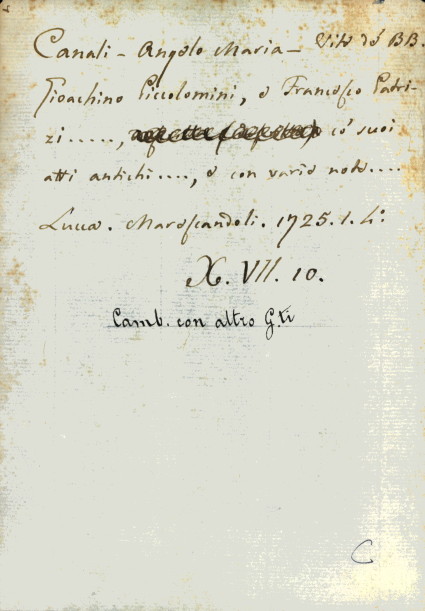 Canali - Angelo Maria - Vite de' BB.
Gioachino Piccolomini, e Francesco Patri-
zi....., co' suoi
atti antichi...., e con varie note....
Lucca. Marescandoli. 1725. 1. 4:
X. VII. 10.
Camb. con altro G.ti
C